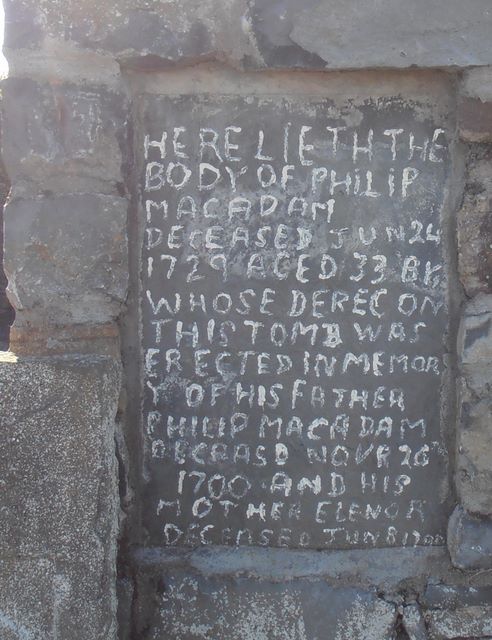 HERE LIETH THE
BODY OF PHILIP
MACADAM
DECEASED JUN 24
1729 AGED 33 BY
WHOSE DEREC ON
THIS TOMB WAS
ERECTED IN MEMOR
Y OF HIS FATHER
PHILIP MACADAM
DECEASD NOVR 26
1700 AND HIS
MOTHER ELENOR
DECEASED JUN 8